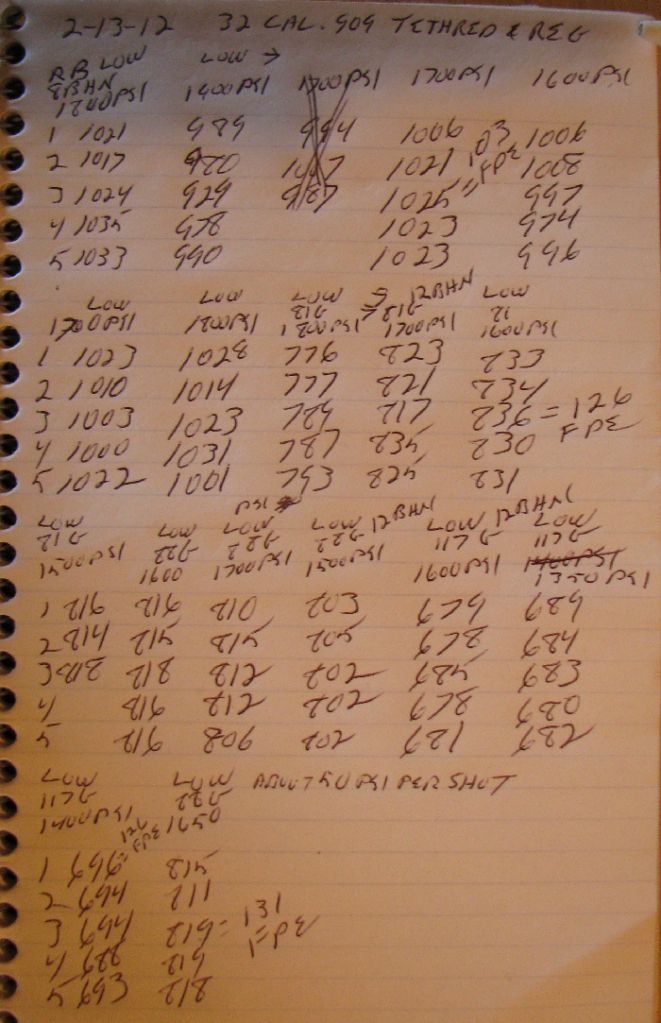 2-13-12 32 CAL. 909 TETHRED & REG
RB LOW LOW →
8BHN
1800PSI 1900PSI 1700PSI 1700PSI 1600PSI
1 1021 989 994 1006 103 1006
2 1017 980 1007 1021 FPE 1008
3 1024 979 987 1025 = 997
4 1035 978 1023 974
5 1033 990 1023 996
LOW LOW LOW 5 12BHN LOW
81G 81G 81
1700PSI 1800PSI 1800PSI 1700PSI 1600PSI
1 1023 1028 776 823 833
2 1010 1014 777 821 834
3 1003 1023 789 817 836 = 126
4 1000 1031 787 835 830 FPE
5 1022 1001 793 825 831
PSI
LOW LOW LOW LOW 12BHN LOW 12BHN LOW
81G 88G 88G 88G 117G 117G
1500PSI 1600 1700PSI 1500PSI 1600PSI 1400PSI
1350PSI
1 816 816 810 803 679 689
2 814 815 815 805 678 684
3 818 818 812 802 685 683
4 816 812 802 678 680
5 816 806 802 681 682
LOW LOW ABOUT 50 PSI PER SHOT
117G 88G
1400PSI 1650
126
1 696 = FPE 815
2 694 811
3 694 819 = 131
4 688 819 FPE
5 693 818